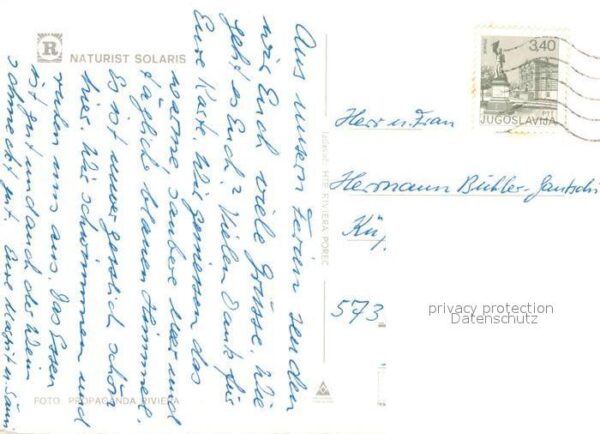 R
NATURIST SOLARIS
Aus unsern Ferien senden
wir Euch viele Grüsse. Wie
geht es Euch? Vielen Dank für
Eure Karte. Wir geniessen das
warme, saubere Meer und
täglich blauen Himmel.
Es ist unvergesslich schön
hier. Wir schwimmen und
ruhen uns aus. Das Essen
ist gut und auch der Wein
schmeckt gut. Eure
FOTO: PROPAGANDA RIVIERA
HTP RIVIERA POREČ
3,40
JUGOSLAVIJA
Herr u. Frau
Hermann Bühler-Jantschi
Kü
573
privacy protection
Datenschutz